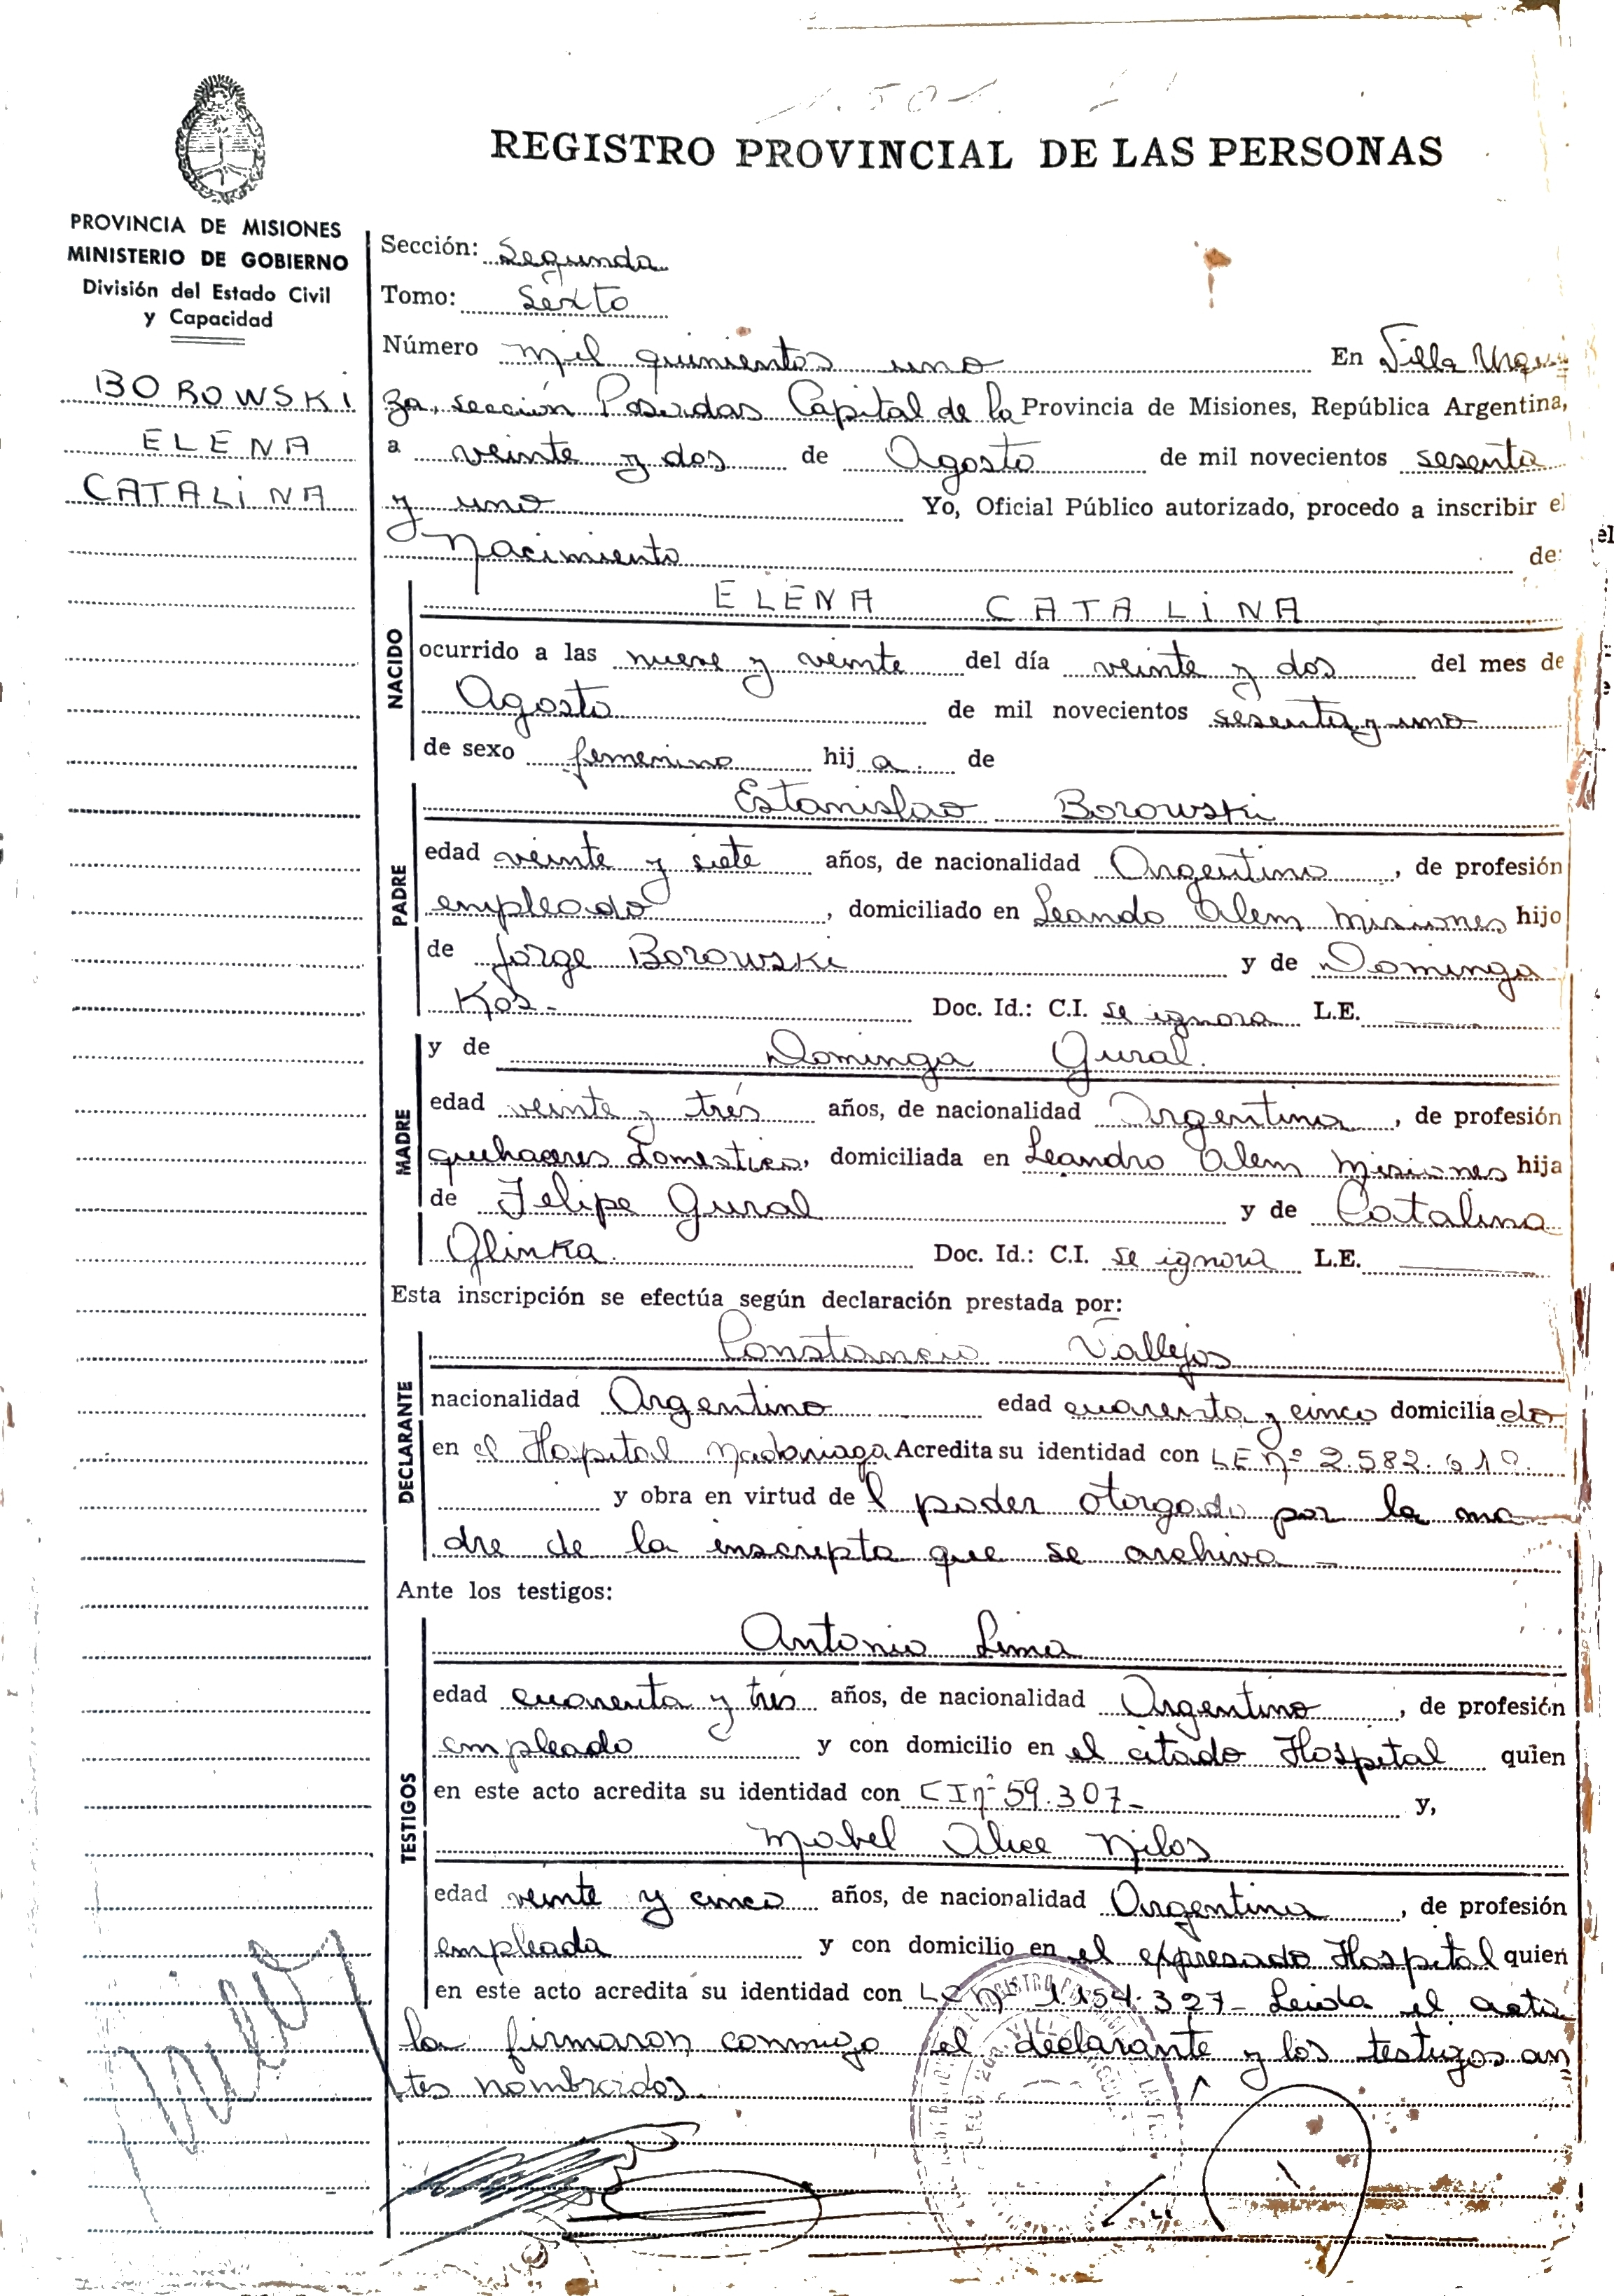 1.501.
REGISTRO PROVINCIAL DE LAS PERSONAS
PROVINCIA DE MISIONES
MINISTERIO DE GOBIERNO
División del Estado Civil
y Capacidad
BOROWSKI
ELENA
CATALINA
Sección: Segunda
Tomo: Sexto
Número mil quinientos uno En Villa Urqui
za, sección Posadas Capital de la Provincia de Misiones, República Argentina,
a veinte y dos de Agosto de mil novecientos sesenta
y uno Yo, Oficial Público autorizado, procedo a inscribir el
Nacimiento de:
NACIDO
ELENA CATALINA
ocurrido a las nueve y veinte del día veinte y dos del mes de
Agosto de mil novecientos sesenta y uno
de sexo femenino hij a. de
PADRE
Estanislao Borowski
edad veinte y siete años, de nacionalidad Argentino, de profesión
empleado, domiciliado en Leando Alem Misiones hijo
de Jorge Borowski y de Dominga
Kos- Doc. Id.: C.I. se ignora L.E.
MADRE
y de Dominga Gural.
edad veinte y tres años, de nacionalidad Argentina, de profesión
quehaceres domesticos, domiciliada en Leandro Alem Misiones hija
de Felipe Gural y de Catalina
Glinka. Doc. Id.: C.I. se ignora L.E.
Esta inscripción se efectúa según declaración prestada por:
DECLARANTE
Constancio Vallejos
nacionalidad Argentino edad cuarenta y cinco domicilia do
en el Hospital Madariaga Acredita su identidad con LE nº 2.582.
y obra en virtud de l poder otorgado por la ma
dre de la inscripta que se archiva -
Ante los testigos:
TESTIGOS
Antonio Lima
edad cuarenta y tres años, de nacionalidad Argentino, de profesión
empleado y con domicilio en el citado Hospital quien
en este acto acredita su identidad con CI nº 59.307- y,
Mabel Alice
edad veinte y cinco años, de nacionalidad Argentina, de profesión
empleada y con domicilio en el expresado Hospital quien
en este acto acredita su identidad con LC nº 1.154.327- Leida el acta
la firmaron conmigo el declarante y los testigos an
tes nombrados.